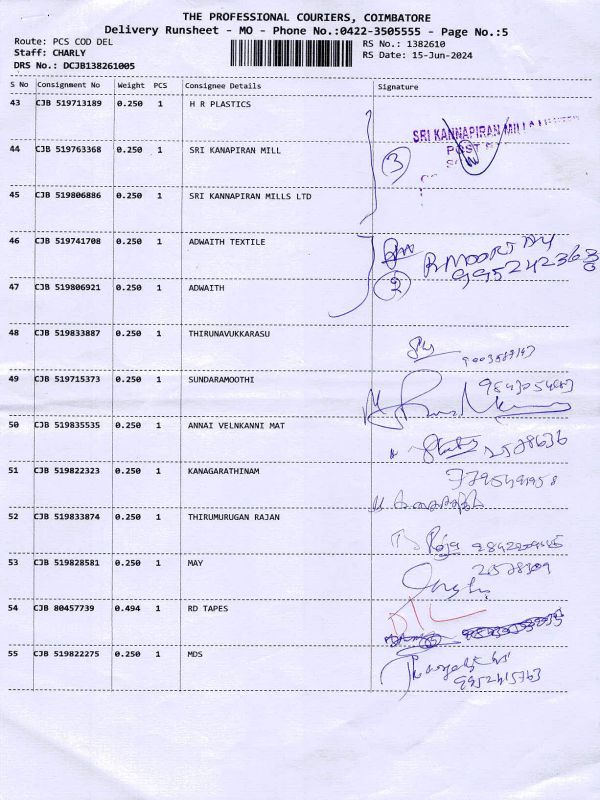 THE PROFESSIONAL COURIERS, COIMBATORE
Delivery Runsheet - MO - Phone No.:0422-3505555 - Page No.:5
Route: PCS COD DEL
RS No.: 1382610
Staff: CHARLY
RS Date: 15-Jun-2024
DRS No.: DCJB138261005
S No Consignment No Weight PCS Consignee Details Signature
43 CJB 519713189 0.250 1 H R PLASTICS
SRI KANNAPIRAN MILL
44 CJB 519763368 0.250 1 SRI KANAPIRAN MILL
3
45 CJB 519806886 0.250 1 SRI KANNAPIRAN MILLS LTD
46 CJB 519741708 0.250 1 ADWAITH TEXTILE
47 CJB 519806921 0.250 1 ADWAITH
2
48 CJB 519833887 0.250 1 THIRUNAVUKKARASU
49 CJB 519715373 0.250 1 SUNDARAMOOTHI
50 CJB 519835535 0.250 1 ANNAI VELNKANNI MAT
2578636
51 CJB 519822323 0.250 1 KANAGARATHINAM
52 CJB 519833874 0.250 1 THIRUMURUGAN RAJAN
53 CJB 519828581 0.250 1 MAY
54 CJB 80457739 0.494 1 RD TAPES
DTL
55 CJB 519822275 0.250 1 MDS
9952415763